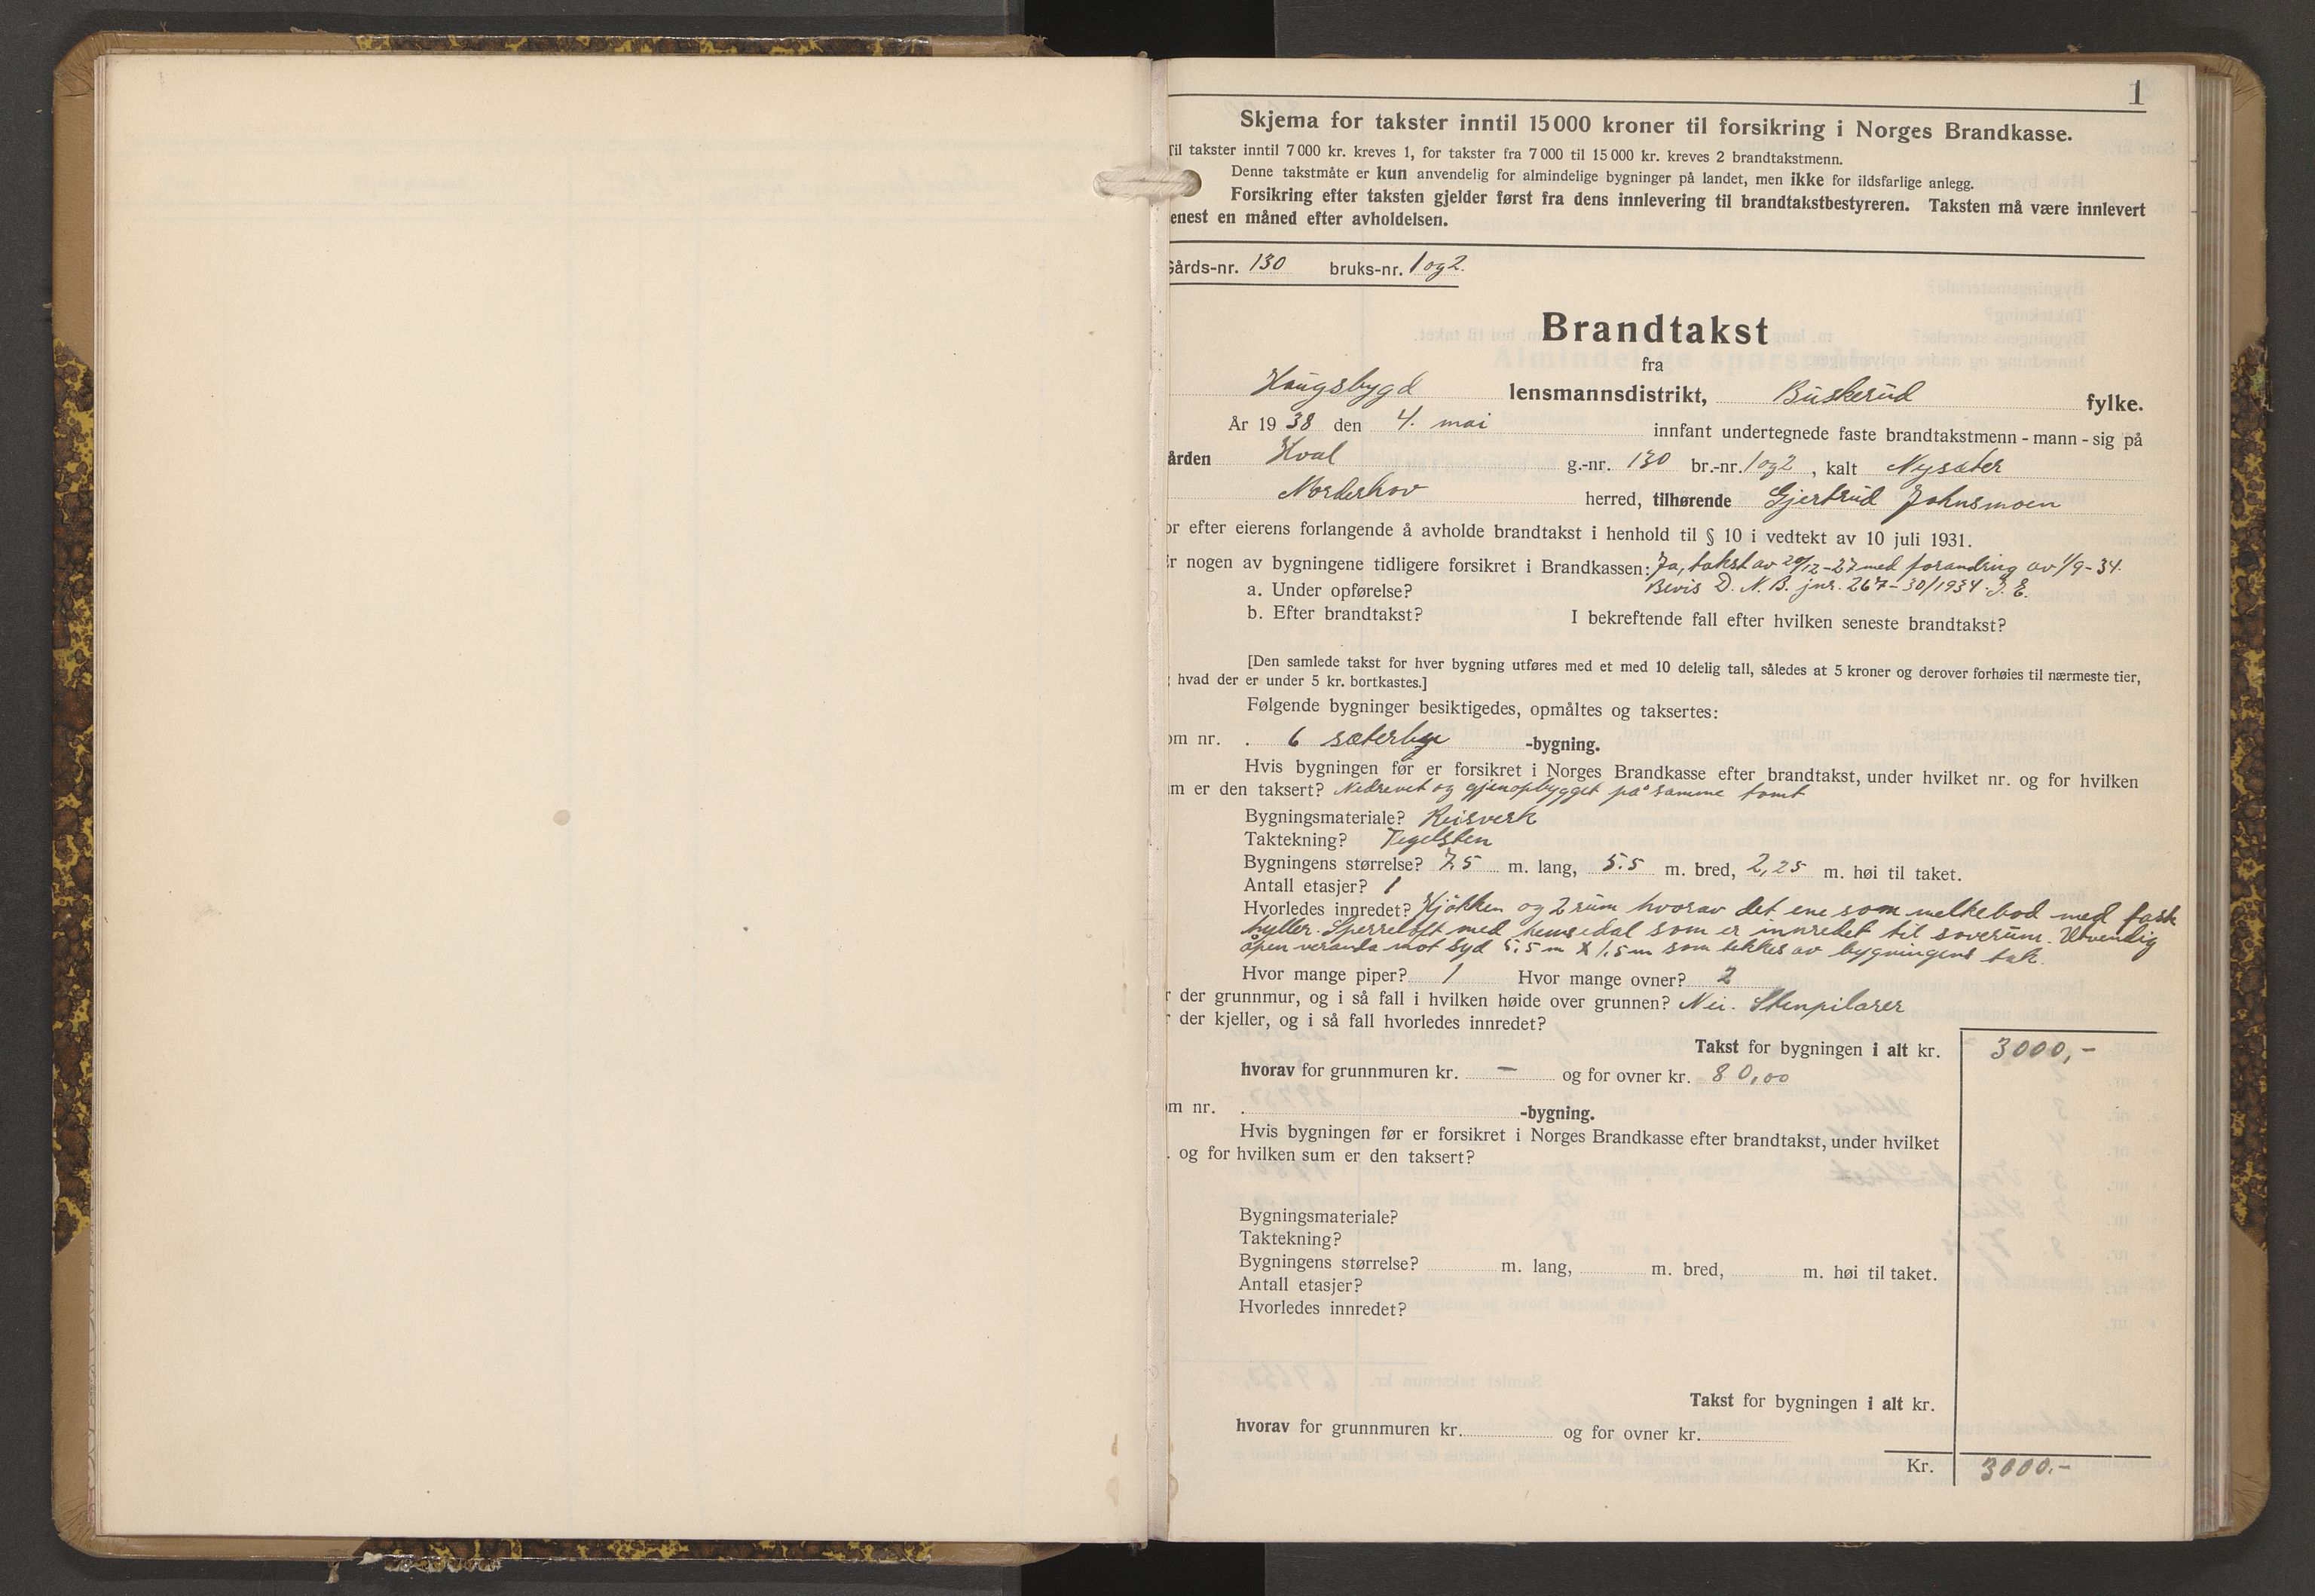 1
Skjema for takster inntil 15 000 kroner til forsikring i Norges Brandkasse.
Til takster inntil 7 000 kr. kreves 1, for takster fra 7 000 til 15 000 kr. kreves 2 brandtakstmenn.
Denne takstmåte er kun anvendelig for almindelige bygninger på landet, men ikke for ildsfarlige anlegg.
Forsikring efter taksten gjelder først fra dens innlevering til brandtakstbestyreren. Taksten må være innlevert
enest en måned efter avholdelsen.
Gårds-nr. 130 bruks-nr. 1 og 2.
Brandtakst
fra
Haugsbygd lensmannsdistrikt, Buskerud fylke.
År 1938 den 4. mai innfant undertegnede faste brandtakstmenn - mann - sig på
ården Hval g.-nr. 130 br.-nr. 1 og 2, kalt Nysæter
Norderhov herred, tilhørende Gjertrud Johnsmoen
or efter eierens forlangende å avholde brandtakst i henhold til § 10 i vedtekt av 10 juli 1931.
r nogen av bygningene tidligere forsikret i Brandkassen: Ja, takst av 20/12-27 med forandring av 1/9-34.
a. Under opførelse? Bevis D. N. B. jnr. 267-30/1934 J. E.
b. Efter brandtakst? I bekreftende fall efter hvilken seneste brandtakst?
[Den samlede takst for hver bygning utføres med et med 10 delelig tall, således at 5 kroner og derover forhøies til nærmeste tier,
hvad der er under 5 kr. bortkastes.]
Følgende bygninger besiktigedes, opmåltes og taksertes:
om nr. . 6 sæterbye -bygning.
Hvis bygningen før er forsikret i Norges Brandkasse efter brandtakst, under hvilket nr. og for hvilken
m er den taksert? Nedrevet og gjenopbygget på samme tomt
Bygningsmateriale? Reisverk
Taktekning? Tegelsten
Bygningens størrelse? 7.5 m. lang, 5.5 m. bred, 2,25 m. høi til taket.
Antall etasjer? 1
Hvorledes innredet? Kjøkken og 2 rum hvorav det ene som melkebod med fast
hyller. Sperreloft med hemsedal som er innredet til soverum. Utvendig
åpen veranda mot syd 5.5 m x 1.5 m som tekkes av bygningens tak.
Hvor mange piper? 1 Hvor mange ovner? 2
r der grunnmur, og i så fall i hvilken høide over grunnen? Nei. Stenpilarer
r der kjeller, og i så fall hvorledes innredet?
Takst for bygningen i alt kr. 3000,-
hvorav for grunnmuren kr. - og for ovner kr. 80,00
om nr. . -bygning.
Hvis bygningen før er forsikret i Norges Brandkasse efter brandtakst, under hvilket
. og for hvilken sum er den taksert?
Bygningsmateriale?
Taktekning?
Bygningens størrelse? m. lang, m. bred, m. høi til taket.
Antall etasjer?
Hvorledes innredet?
Takst for bygningen i alt kr.
hvorav for grunnmuren kr. og for ovner kr.
Kr. 3000.-